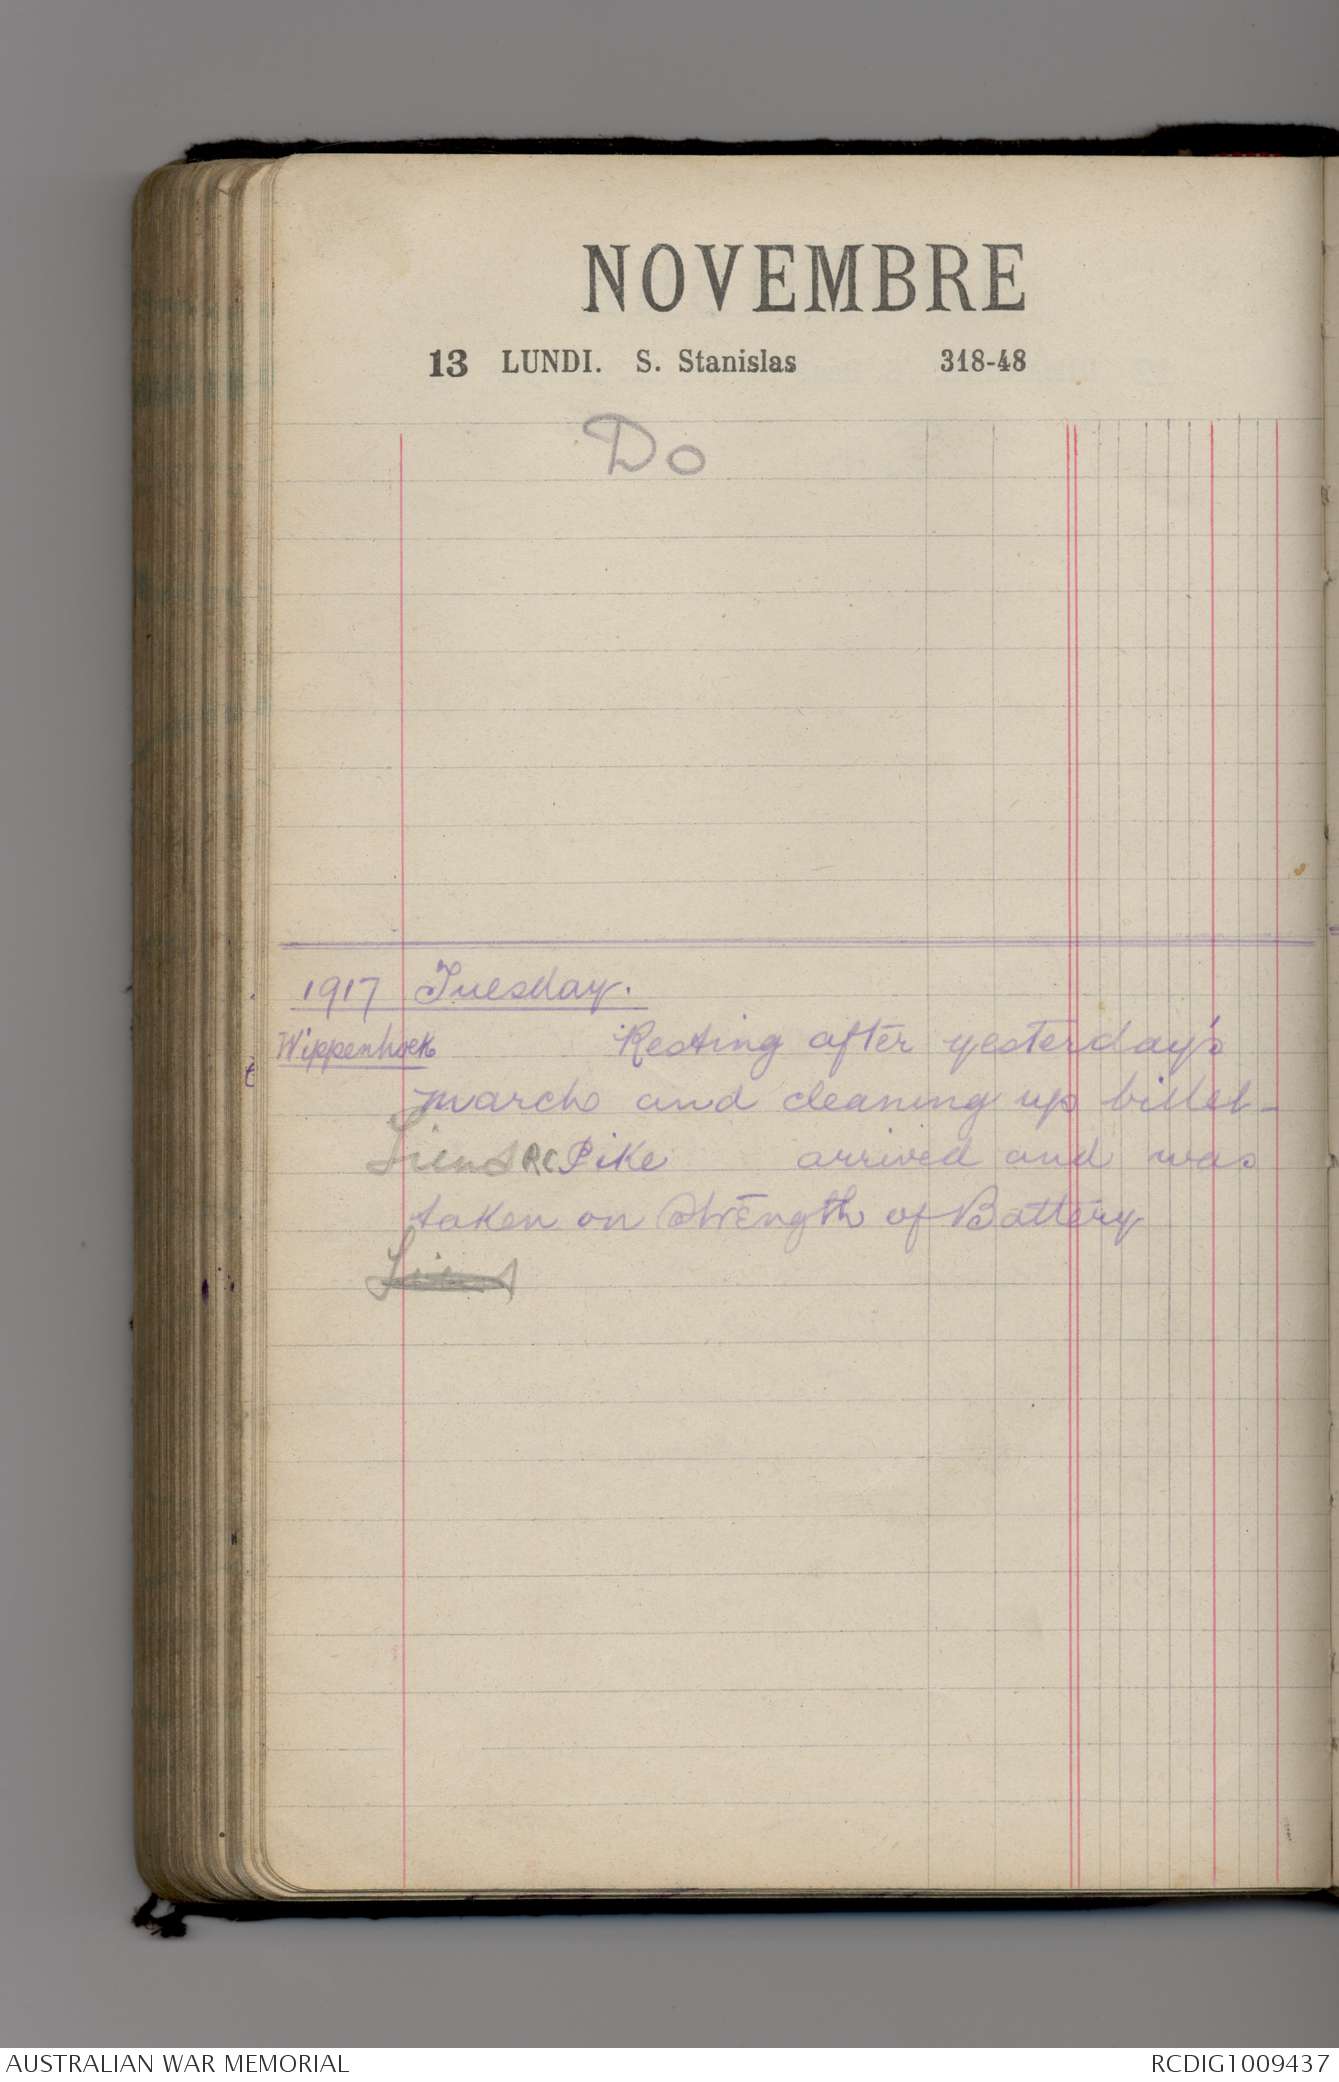 NOVEMBRE
13 LUNDI. S. Stanislas 318-48
Do
1917 Tuesday.
Wippenhoek Resting after yesterday's
march and cleaning up billet -
Lieut RC Pike arrived and was
taken on Strength of Battery
Lieut
AUSTRALIAN WAR MEMORIAL RCDIG1009437